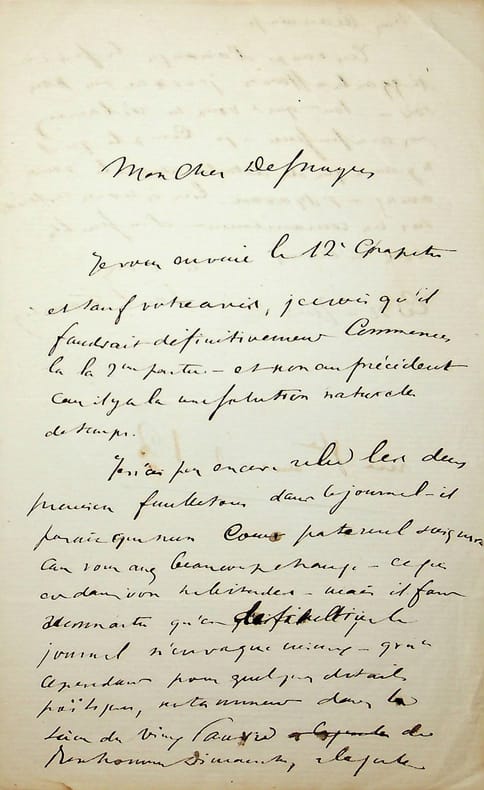 Mon Cher Desnoyers
Je vous envoie le 12e Chapitre
et sauf votre avis, je crois qu'il
faudrait définitivement Commencer
là la 2me partie - et non au précédent
car il y a là une solution naturelle
de temps.
Je n'ai pas encore relu les deux
premiers feuilletons dans le journal - il
paraît que mon Cœur paternel saignera
Car vous avez beaucoup changé - ce qui
est dans vos habitudes - mais il faut
reconnaître qu'en définitive le
journal n'en va que mieux - grâce
Cependant pour quelques détails
poétiques, notamment dans la
scène du vieux pauvre de
bonhomme Dimanche,